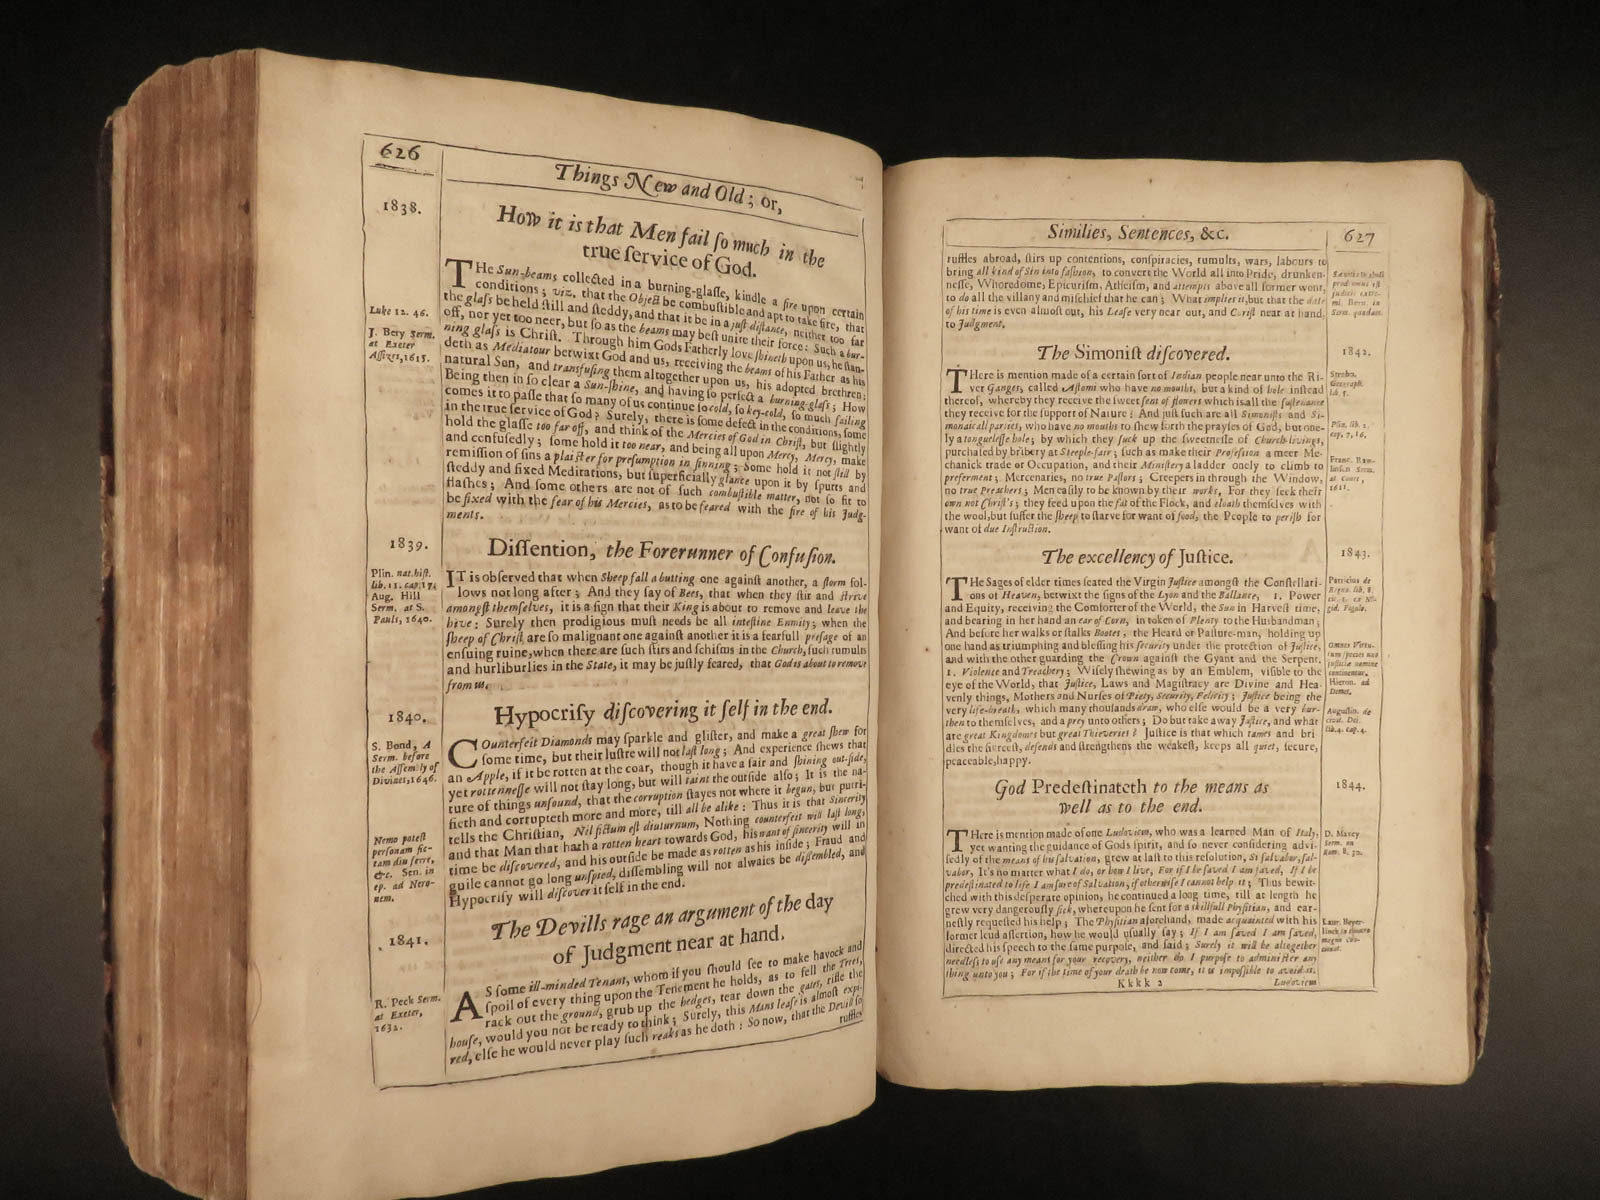 626
Things New and Old; or,
1838.
How it is that Men fail ſo much in the
true ſervice of God.
THe Sun-beams collected in a burning-glaſſe, kindle a fire upon certain
conditions; viz. that the Object be combuſtible and apt to take fire, that
the glaſs be held ſtill and ſteddy, and that it be in a juſt diſtance, neither too far
off, nor yet too neer, but ſo as the beams may beſt unite their force: Such a bur-
ning glaſs is Chriſt. Through him Gods Fatherly love ſhineth upon us, he ſtan-
deth as Mediatour betwixt God and us, receiving the beams of his Father as his
natural Son, and transfuſing them altogether upon us, his adopted brethren:
Being then in ſo clear a Sun-ſhine, and having ſo perfect a burning-glaſs; How
comes it to paſſe that ſo many of us continue ſo cold, ſo key-cold, ſo much failing
in the true ſervice of God? Surely, there is ſome defect in the conditions, ſome
hold the glaſſe too far off, and think of the Mercies of God in Chriſt, but ſlightly
and confuſedly; ſome hold it too near, and being all upon Mercy, Mercy, make
remiſſion of ſins a plaiſter for preſumption in ſinning; Some hold it not ſtill by
ſteddy and fixed Meditations, but ſuperficially glance upon it by ſpurts and
flaſhes; And ſome others are not of ſuch combuſtible matter, not ſo fit to
be fixed with the fear of his Mercies, as to be feared with the fire of his Judg-
ments.
Luke 12. 46.
J. Bery Serm.
at Exeter
Aſſizes, 1615.
1839.
Diſſention, the Forerunner of Confuſion.
IT is obſerved that when Sheep fall a butting one againſt another, a ſtorm fol-
lows not long after; And they ſay of Bees, that when they ſtir and ſtrive
amongſt themſelves, it is a ſign that their King is about to remove and leave the
hive: Surely then prodigious muſt needs be all inteſtine Enmity; when the
ſheep of Chriſt are ſo malignant one againſt another it is a fearfull preſage of an
enſuing ruine, when there are ſuch ſtirs and ſchiſms in the Church, ſuch tumults
and hurliburlies in the State, it may be juſtly feared, that God is about to remove
from us.
Plin. nat. hiſt.
lib. 11. cap. 17.
Aug. Hill
Serm. at S.
Pauls, 1640.
1840.
Hypocriſy diſcovering it ſelf in the end.
COunterfeit Diamonds may ſparkle and gliſter, and make a great ſhew for
ſome time, but their luſtre will not laſt long; And experience ſhews that
an Apple, if it be rotten at the coar, though it have a fair and ſhining out-ſide,
yet rottenneſſe will not ſtay long, but will taint the outſide alſo; It is the na-
ture of things unſound, that the corruption ſtayes not where it begun, but putri-
fieth and corrupteth more and more, till all be alike: Thus it is that Sincerity
tells the Chriſtian, Nil fictum eſt diuturnum, Nothing counterfeit will laſt long,
and that Man that hath a rotten heart towards God, his want of ſincerity will in
time be diſcovered, and his outſide be made as rotten as his inſide; Fraud and
guile cannot go long unſpied, diſſembling will not alwaies be diſſembled, and
Hypocriſy will diſcover it ſelf in the end.
S. Bond, A
Serm. before
the Aſſembly of
Divines, 1646.
Nemo poteſt
perſonam fic-
tam diu ferre,
&c. Sen. in
ep. ad Nero-
nem.
1841.
The Devills rage an argument of the day
of Judgment near at hand.
AS ſome ill-minded Tenant, whom if you ſhould ſee to make havock and
ſpoil of every thing upon the Tenement he holds, as to fell the Trees,
rack out the ground, grub up the hedges, tear down the gates, rifle the
houſe, would you not be ready to think; Surely, this Mans leaſe is almoſt expi-
red, elſe he would never play ſuch reaks as he doth: So now, that the Devill ſo
ruffles
R. Peck Serm.
at Exeter,
1632.
Similies, Sentences, &c.
627
ruffles abroad, ſtirs up contentions, conſpiracies, tumults, wars, labours to
bring all kind of Sin into faſhion, to convert the World all into Pride, drunken-
neſſe, Whoredome, Epicuriſm, Atheiſm, and attempts above all former wont,
to do all the villany and miſchief that he can; What implies it, but that the date
of his time is even almoſt out, his Leaſe very near out, and Chriſt near at hand,
to Judgment.
1842.
The Simoniſt diſcovered.
THere is mention made of a certain ſort of Indian people near unto the Ri-
ver Ganges, called Aſtomi who have no mouths, but a kind of hole inſtead
thereof, whereby they receive the ſweet ſent of flowers which is all the ſuſtenance
they receive for the ſupport of Nature: And juſt ſuch are all Simoniſts and Si-
moniacall parties, who have no mouths to ſhew forth the prayſes of God, but one-
ly a tongueleſſe hole; by which they ſuck up the ſweetneſſe of Church-livings,
purchaſed by bribery at Steeple-fair; ſuch as make their Profeſſion a meer Me-
chanick trade or Occupation, and their Miniſtery a ladder onely to climb to
preferment; Mercenaries, no true Paſtors; Creepers in through the Window,
no true Preachers; Men eaſily to be known by their works, For they ſeek their
own not Chriſt's; they feed upon the fat of the Flock, and cloath themſelves with
the wool, but ſuffer the ſheep to ſtarve for want of food, the People to periſh for
want of due Inſtruction.
Strabo.
Geograph.
lib. 5.
Plin. lib. 2.
cap. 7, 16.
at Court,
1843.
The excellency of Juſtice.
THe Sages of elder times ſeated the Virgin Juſtice amongſt the Conſtellati-
ons of Heaven, betwixt the ſigns of the Lyon and the Ballance, 1. Power
and Equity, receiving the Comforter of the World, the Sun in Harveſt time,
and bearing in her hand an ear of Corn, in token of Plenty to the Husbandman;
And before her walks or ſtalks Bootes, the Heard or Paſture-man, holding up
one hand as triumphing and bleſſing his ſecurity under the protection of Juſtice,
and with the other guarding the Crown againſt the Gyant and the Serpent.
1. Violence and Treachery; Wiſely ſhewing as by an Emblem, viſible to the
eye of the World, that Juſtice, Laws and Magiſtracy are Divine and Hea-
venly things, Mothers and Nurſes of Piety, Security, Felicity; Juſtice being the
very life-breath, which many thouſands draw, who elſe would be a very bur-
then to themſelves, and a prey unto others; Do but take away Juſtice, and what
are great Kingdomes but great Thieveries? Juſtice is that which tames and bri
dles the fierceſt, defends and ſtrengthens the weakeſt, keeps all quiet, ſecure,
peaceable, happy.
Patricius de
Regno. lib. 8.
Omnes Virtu-
tum ſpecies uno
juſtitiæ nomine
continentur.
Hieron. ad
Demet.
Auguſtin. de
civit. Dei.
lib. 4. cap. 4.
1844.
God Predeſtinateth to the means as
well as to the end.
THere is mention made of one Ludovicus, who was a learned Man of Italy,
yet wanting the guidance of Gods ſpirit, and ſo never conſidering advi-
ſedly of the means of his ſalvation, grew at laſt to this reſolution, Si ſalvabor, ſal-
vabor, It's no matter what I do, or how I live, For if I be ſaved I am ſaved, If I be
predeſtinated to life I am ſure of Salvation, if otherwiſe I cannot help it; Thus bewit-
ched with this deſperate opinion, he continued a long time, till at length he
grew very dangerouſly ſick, whereupon he ſent for a skilfull Phyſitian, and ear-
neſtly requeſted his help; The Phyſitian aforehand, made acquainted with his
former leud aſſertion, how he would uſually ſay; If I am ſaved I am ſaved,
directed his ſpeech to the ſame purpoſe, and ſaid; Surely it will be altogether
needleſs to uſe any means for your recovery, neither do I purpoſe to adminiſter any
thing unto you; For if the time of your death be now come, it is impoſſible to avoid it.
D. Maxey
Serm. on
Rom. 8. 30.
Kkkk 2
Ludovicus